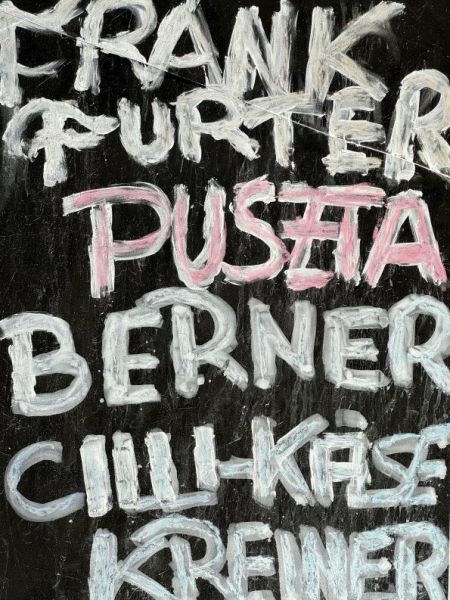 FRANK
FURTER
PUSZTA
BERNER
CILLI-KÄSE
KREINER